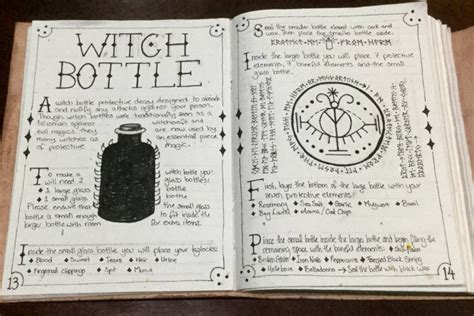 WITCH
BOTTLE
A witch bottle protective decoy designed to absorb
and nullify any attacks against your person.
Though witch bottles were traditionally seen as a
talisman against witchcraft and
evil magics they are now used by
many witches as an essential piece
of protective magic.
To make a witch bottle you
will need glass bottles:
1 large glass bottle
1 small glass bottle
Please ensure that the small glass
bottle is small enough to fit inside the
larger bottle with room for extra items.
Inside the small glass bottle you will place your taglocks:
Blood Sweat Tears Hair Urine
Fingernail clippings Spit Mucus
13
Seal the smaller bottle closed with cork and
wax, then place the smaller bottle aside.
Inside the larger bottle you will place 7 protective
elements, 7 baneful elements and the small
glass bottle.
First, layer the bottom of the large bottle with your
seven protective elements:
Rosemary Sea Salt Garlic Mugwort Basil
Bay Laurel Acorns / Oak Chips
Place the small bottle inside the large bottle and begin filling the
remaining space with the baneful elements:
Broken Glass Iron Nails Peppercorns Tangled Black String
Hellebore Belladonna → Seal the bottle with black wax
14